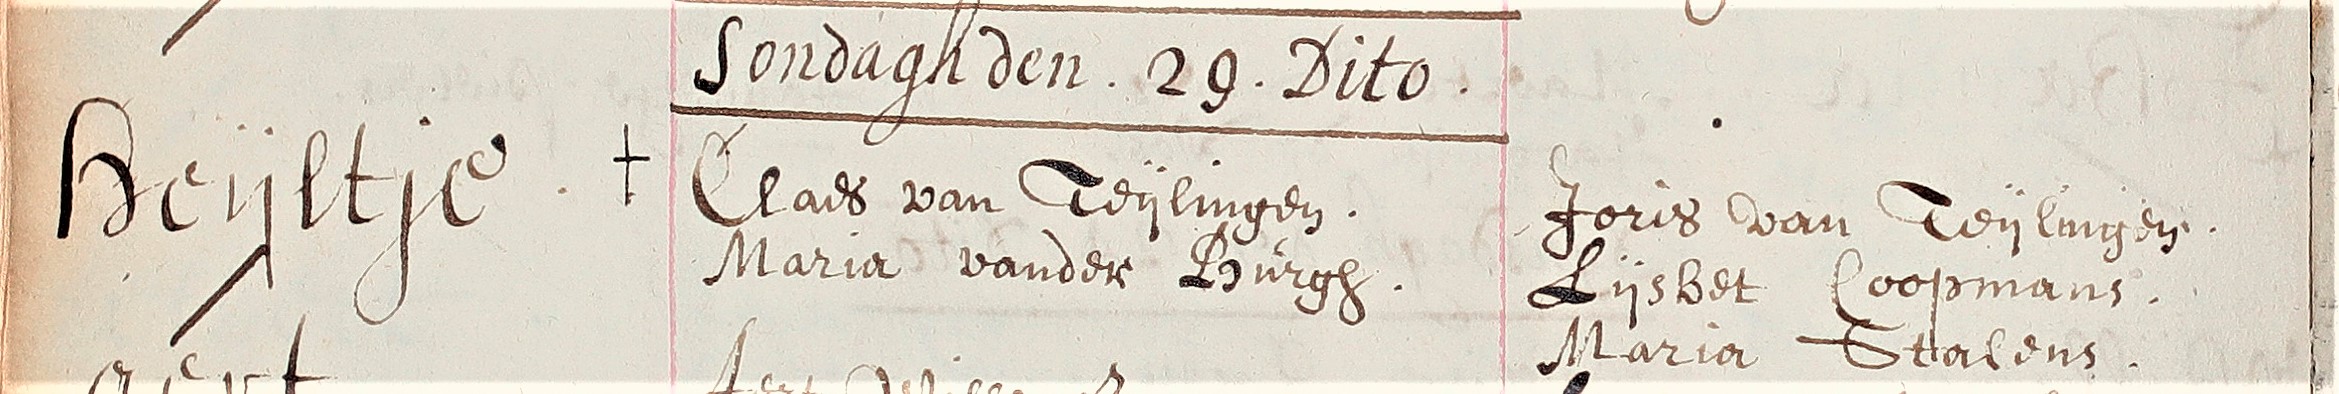 Sondagh den . 29 . Dito .
Heijltje . †
Claes van Teijlingen .
Maria vander Burgh .
Joris van Teijlingen .
Lijsbet Coopmans .
Maria Stalens .